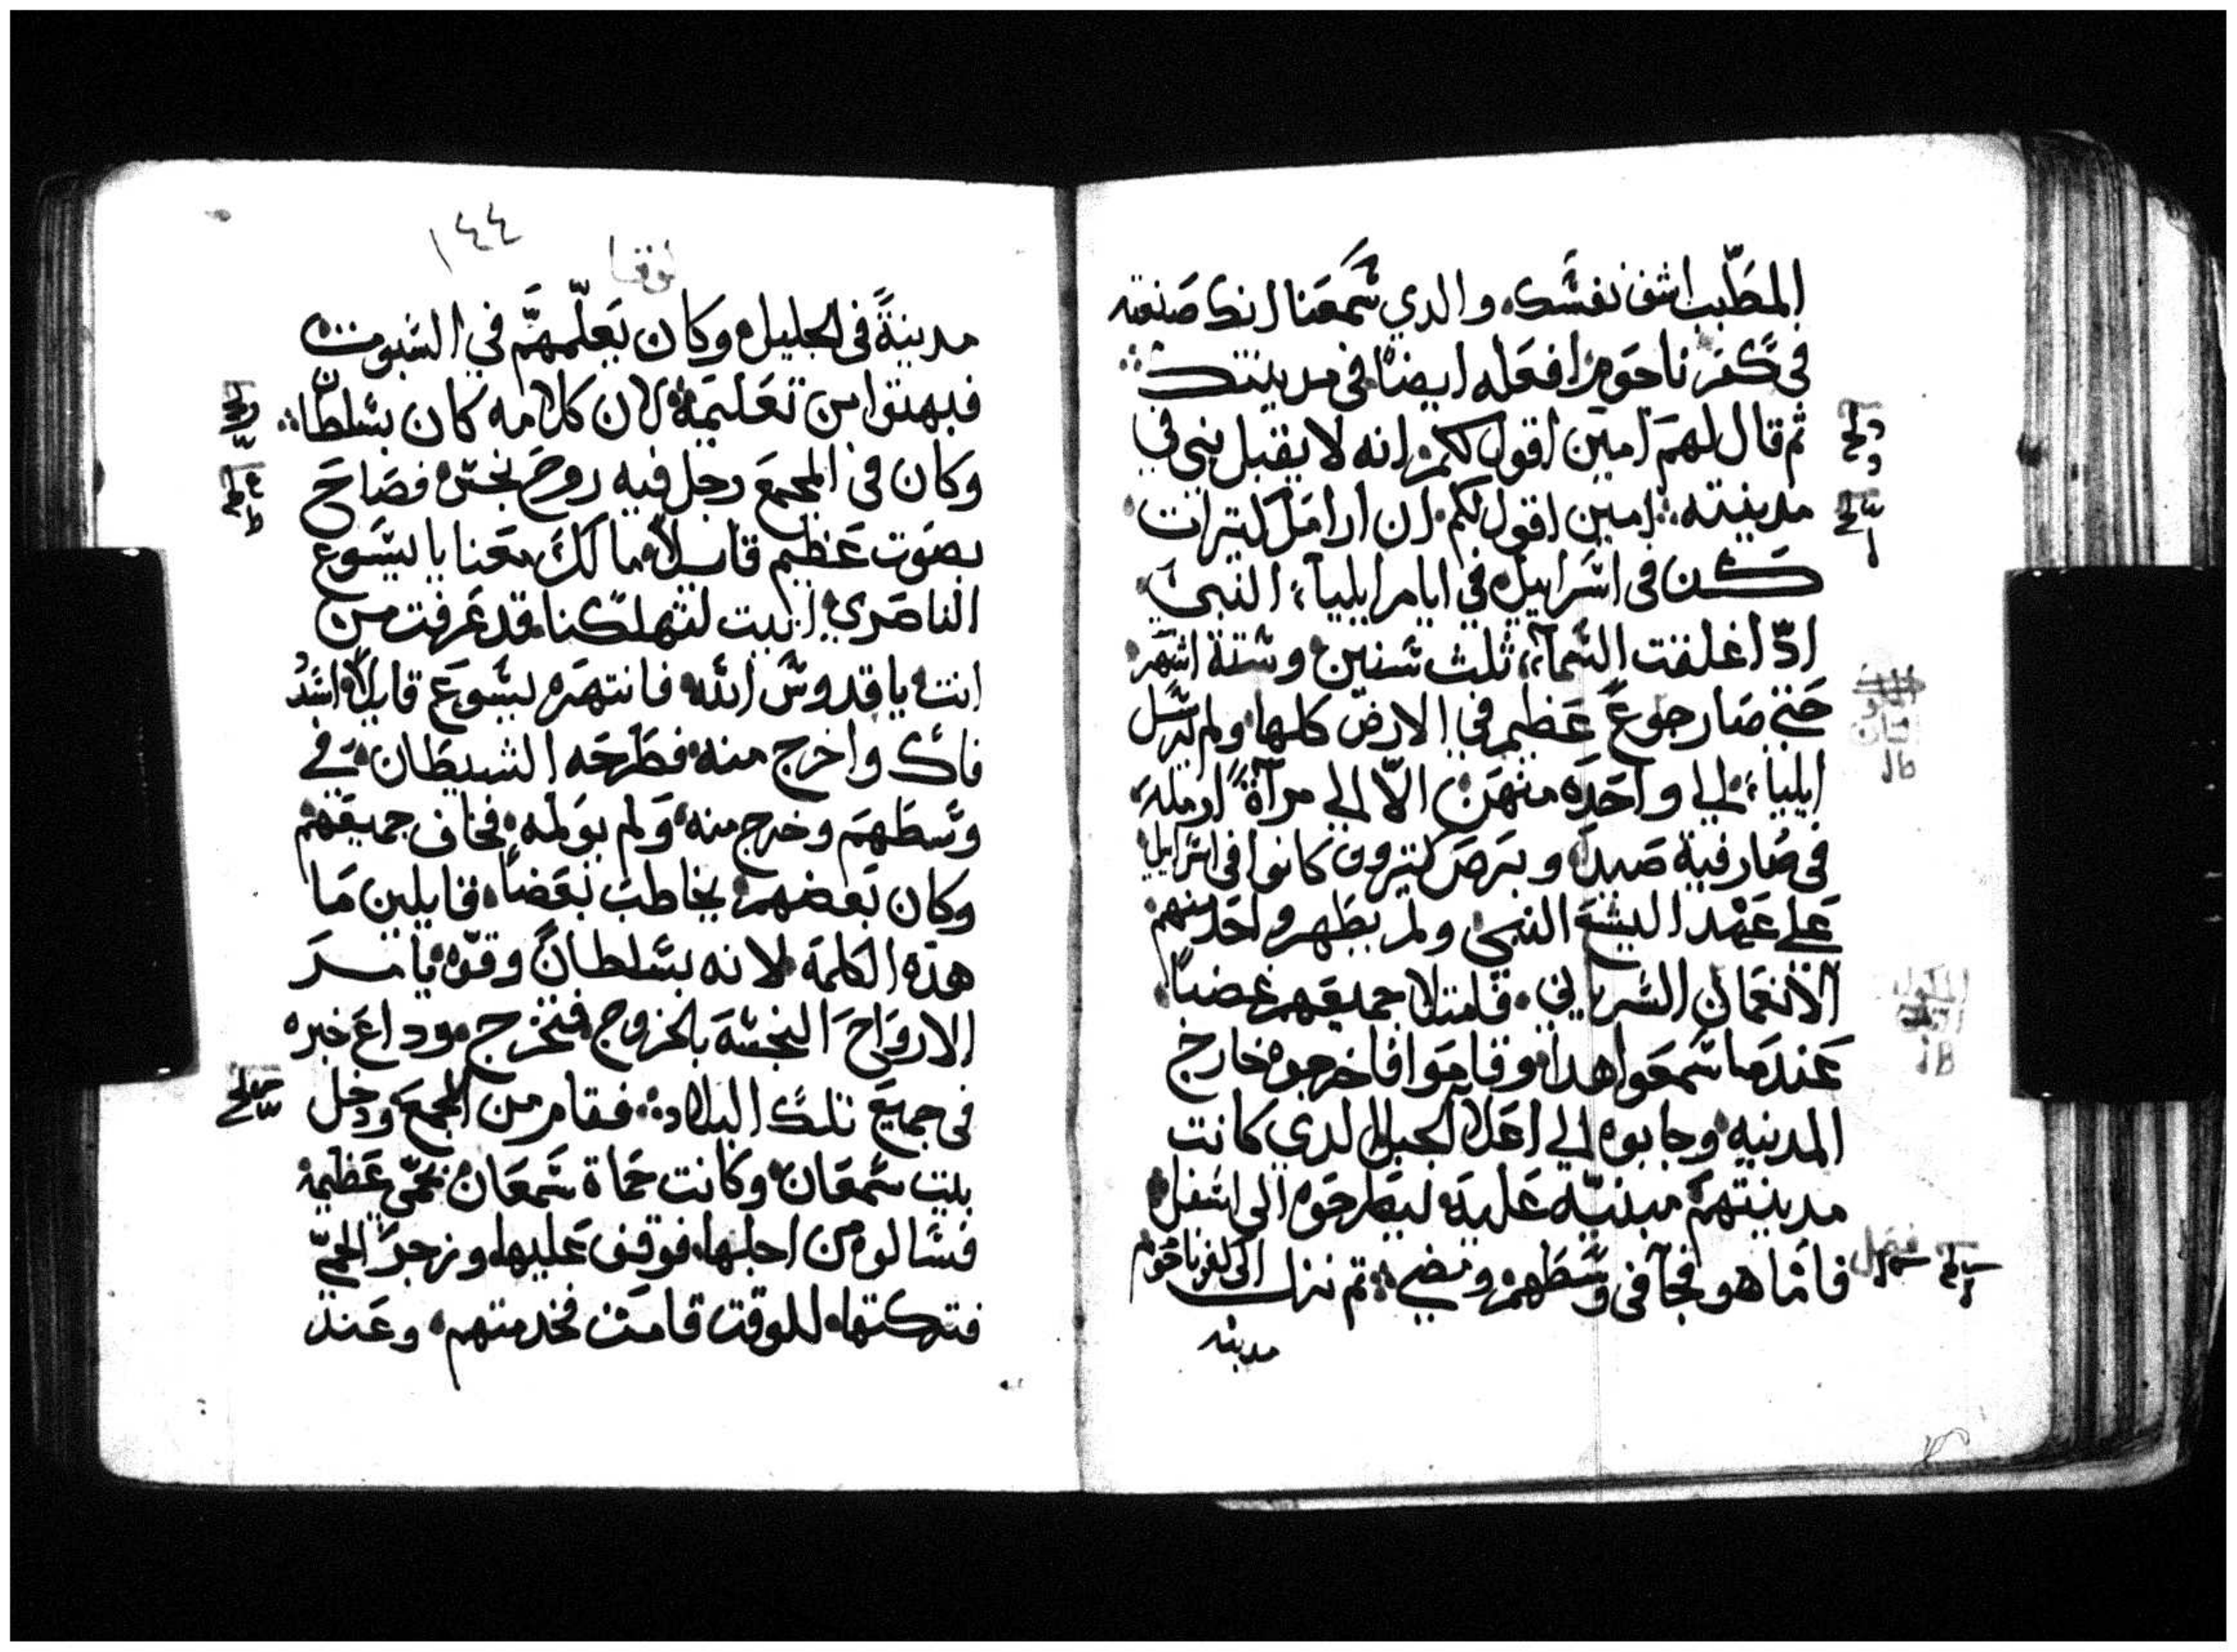 المطَبّب اشف نفسَك والدي سَمعَنا انك صَنعته
فى كفر ناحوم افعَله ايضاً فى مدينتك
ثم قال لهم امين اقول لكم انه لا يقبل نبى في
مدينته امين اقول لكم ان ارامَل كتيرات
كن فى اسَراييل في ايام ايلياء النبي
ادّ اغلقت السَمآء ثلث سَنين وستة اشهر
حَتي صَار جوع عَظيم في الارض كلها ولم يرسَل
ايلياء الي واحَده منهن الاّ الي مرآة ارمله
في صَارفية صَيدا وبرصَ كتيرون كانوا في اسَراييل
عَلي عَهد اليشع النبي ولم يطهر واحَد منهم
الا نعمَان السَرياني فامتلا جميعَهم غضباً
عَندما سَمعَوا هدا وقاموا فاخرجوه خارج
المدينه وجابوه الي اعَلا الجبل الدي كانت
مدينتهم مبنيّه عَليه ليطرحَوه الى اسَفل
فامّا هو فجآ فى وسَطهم ومضي تم نزل الى كفرناحوم
مدينه
١٤٤
لوقا
مدينةً فى الجليل وكان يَعلّمهمَ في السَبوت
فبهتوا من تعَليمَه لان كلامه كان بسَلطان
وكان فى المجمعَ رجل فيه روح نجسَ فصَاحَ
بصَوت عَظيم قايلاً ما لكَ معَنا يا ليسَوع
الناصَري اتيت لتهلكنا قد عَرفت من
انت يا قدوسَ الله فانتهَره ليسَوعَ قايلاً اسَدُد
فاك واخرج منه فطَرحَه الشيطَان في
وسَطَهمَ وخرج منه ولم يولمه فخاف جميعَهم
وكان بَعَضهم يخاطبَ بَعَضاً قايلين مَا
هذه الكلمة لانه بسَلطانً وقوّه يامــرَ
الارواحَ النجسَة بالخروج فتخرج وداعَ خبره
فى جميعَ تلك البلاد فقام من المجمعَ ودخل
بيت سَمعَان وكانت حَماة سَمعَان بحَمّي عَظيمه
فسَالوه من اجلها فوقف عَليها وزجرَ الحمّي
فتركتها للوقت قامَت فخدمتهم وعَند